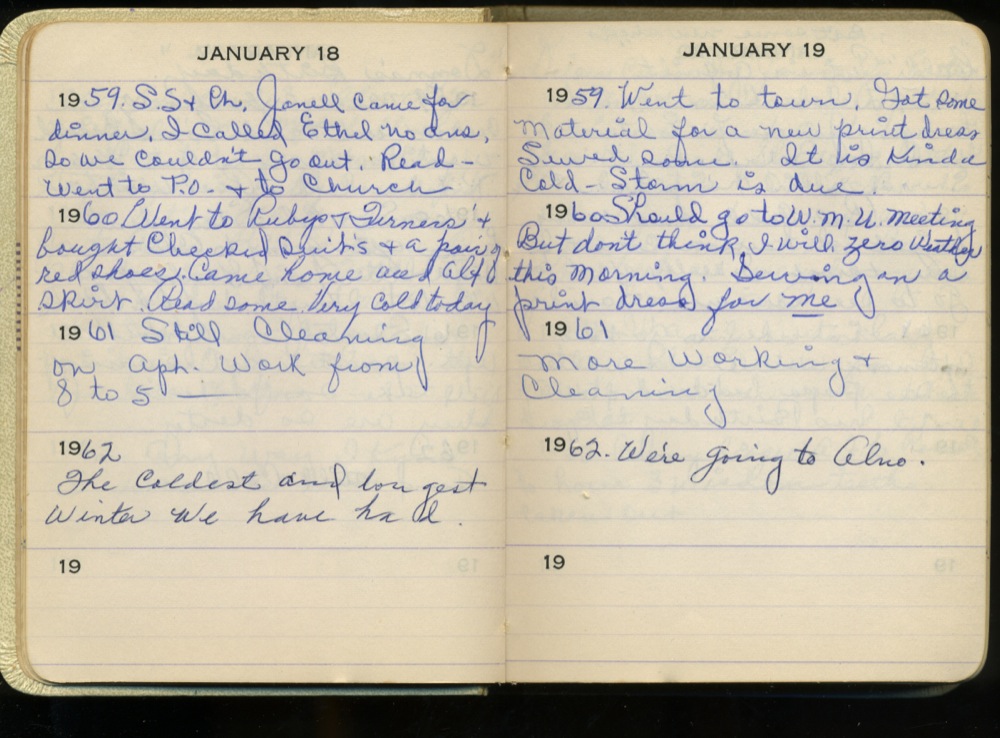 JANUARY 18
1959. S.S + Ch. Jonell Came for
dinner. I Called Ethel no ans,
so we couldn't go out. Read -
Went to P.O. - + to Church
1960 Went to Rubys + Turners' +
bought Checked suits + a pair
red shoes. Came home and
skirt. Read some. Very Cold today
1961 Still Cleaning
on Aph. Work from
8 to 5
1962
The Coldest and longest
Winter We have had.
19
JANUARY 19
1959. Went to town. Got some
Material for a new print dress
Sewed some. It is Kinda
Cold - Storm is due.
1960 Should go to W.M.U. Meeting
But don't think I will zero Weather
this Morning. Sewing on a
print dress for me
1961
More Working +
Cleaning
1962. We're going to
19